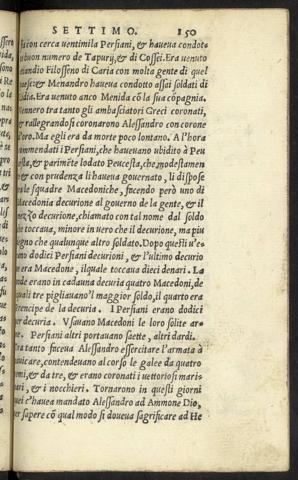 SETTIMO. 150
la con cerca uentimila Persiani, & haueua condot-
buon numero de Tapurij, & di Cossei. Era uenuto
tiandio Filosseno di Caria con molta gente di quel
& Menandro haueua condotto assai soldati di
idia. Era uenuto anco Menida cō la sua cōpagnia.
ennero tra tanto gli ambasciatori Greci coronati,
rallegrandosi coronarono Alessandro con corone
oro. Ma egli era da morte poco lontano. A l'hora
mmendati i Persiani, che haueuano ubidito à Peu
esta, & parimēte lodato Peucesta, che, modestamen
& con prudenza li haueua gouernato, li dispose
le squadre Macedoniche, facendo però uno di
Macedonia decurione al gouerno de la gente, & il
mezzo decurione, chiamato con tal nome dal soldo
che toccaua, minore in uero che il decurione, ma piu
degno che qualunque altro soldato. Dopo questi u'e-
no dodici Persiani decurioni, & l'ultimo decurio
era Macedone, ilquale toccaua dieci denari. La
onde erano in cadauna decuria quatro Macedoni, de
quali tre pigliauano'l maggior soldo, il quarto era
rencipe de la decuria. I Persiani erano dodici
er decuria. Vsauano Macedoni le loro solite ar-
e. Persiani altri portauano saette, altri dardi.
ra tanto faceua Alessandro essercitare l'armata à
auicare, contendeuano al corso le galee da quatro
emi, & da tre, & erano coronati i uettoriosi mari-
ari, & i nocchieri. Tornarono in questi giorni
uei c'haueua mandato Alessandro ad Ammone Dio,
er sapere cō qual modo si doueua sagrificare ad He